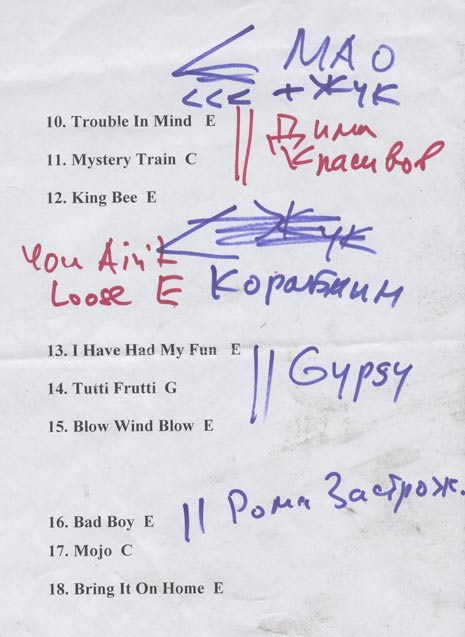 МАО
<<< + ЖУК
10. Trouble In Mind E
Дима
11. Mystery Train C
Красивов
12. King Bee E
ЖУК
You Ain't
Loose E
Корабкин
13. I Have Had My Fun E
Gypsy
14. Tutti Frutti G
15. Blow Wind Blow E
Рома Застрож.
16. Bad Boy E
17. Mojo C
18. Bring It On Home E